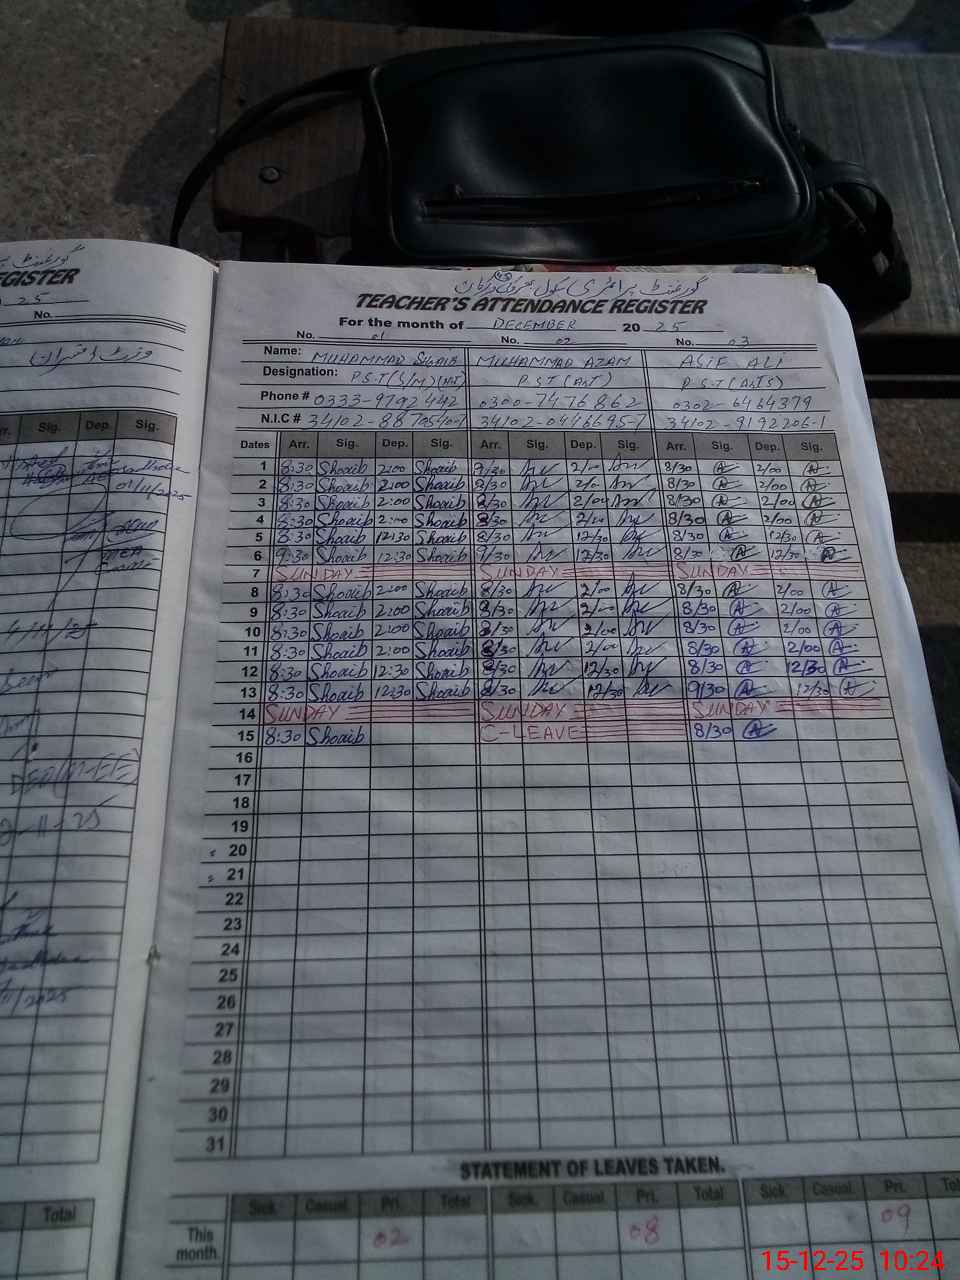 گورنمنٹ پرائمری سکول
TEACHER'S ATTENDANCE REGISTER
For the month of DECEMBER 2025
No. 01 No. 02 No. 03
Name: MUHAMMAD SHOAIB MUHAMMAD AZAM ASIF ALI
Designation: P.S.T (S/M) P.S.T P.S.T
Phone # 0333-9792442 0300-7476862 0302-6464379
N.I.C # 34102-8870540-1 34102-0446695-7 34102-9192206-1
Dates Arr. Sig. Dep. Sig. Arr. Sig. Dep. Sig. Arr. Sig. Dep. Sig.
1 8:30 Shoaib 2:00 Shoaib 8/30 2/00 8/30 A 2/00 A
2 8:30 Shoaib 2:00 Shoaib 8/30 2/0 8/30 A 2/00 A
3 8:30 Shoaib 2:00 Shoaib 8/30 2/00 8/30 A 2/00 A
4 8:30 Shoaib 2:00 Shoaib 8/30 2/00 8/30 A 2/00 A
5 8:30 Shoaib 12:30 Shoaib 8/30 12/30 8/30 A 12/30 A
6 9:30 Shoaib 12:30 Shoaib 9/30 12/30 8/30 A 12/30 A
7 SUNDAY SUNDAY SUNDAY
8 8:30 Shoaib 2:00 Shoaib 8/30 2/00 8/30 A 2/00 A
9 8:30 Shoaib 2:00 Shoaib 8/30 2/00 8/30 A 2/00 A
10 8:30 Shoaib 2:00 Shoaib 8/30 2/00 8/30 A 2/00 A
11 8:30 Shoaib 2:00 Shoaib 8/30 2/00 8/30 A 2/00 A
12 8:30 Shoaib 12:30 Shoaib 8/30 12/30 8/30 A 12/30 A
13 8:30 Shoaib 12:30 Shoaib 8/30 12/30 9/30 A 12/30 A
14 SUNDAY SUNDAY SUNDAY
15 8:30 Shoaib C-LEAVE 8/30 A
16
17
18
19
20
21
22
23
24
25
26
27
28
29
30
31
STATEMENT OF LEAVES TAKEN.
Sick. Casual. Pri. Total Sick. Casual. Pri. Total Sick. Casual. Pri.
This month. 02 08 09
EGISTER
25
No.
Sig. Dep. Sig.
01/11/2025
11/2025
Total
15-12-25 10:24